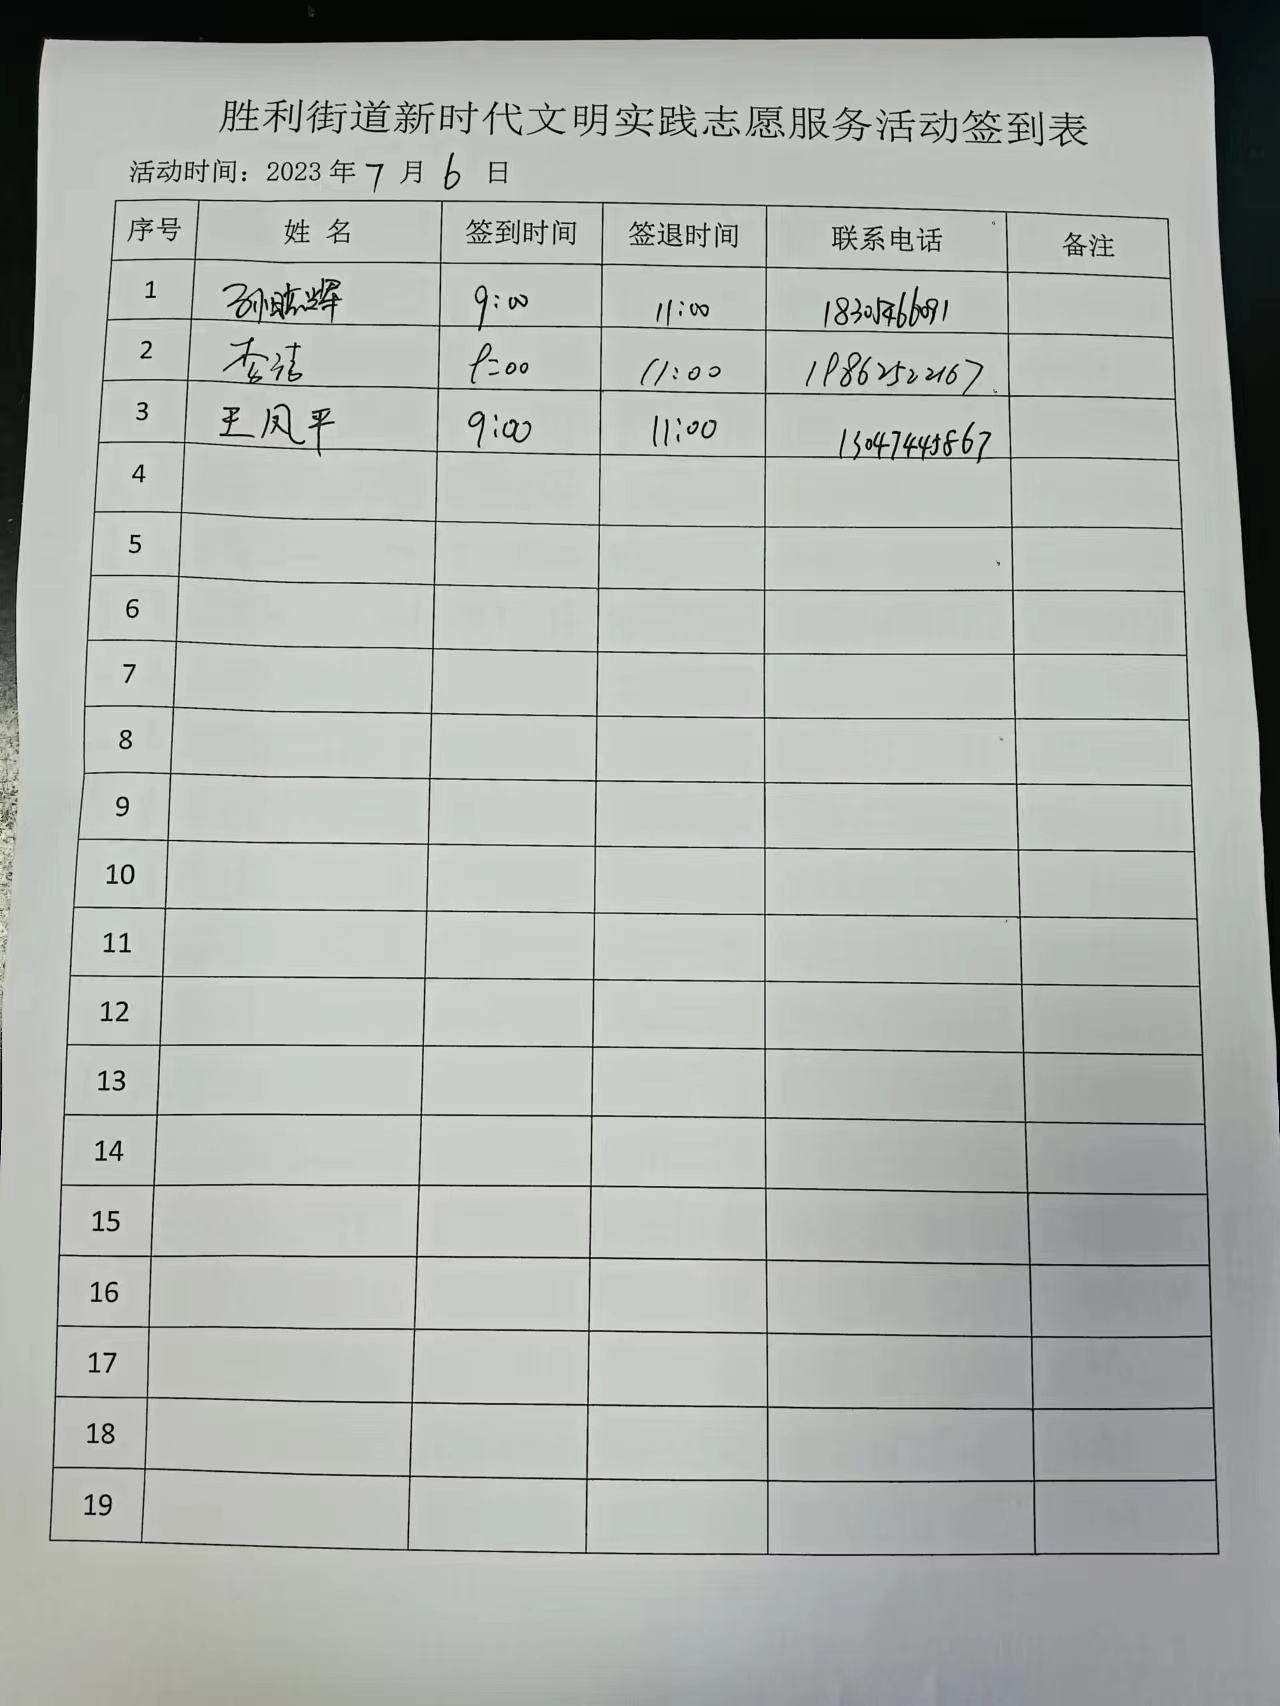 胜利街道新时代文明实践志愿服务活动签到表
活动时间：2023 年 7 月 6 日
序号 姓 名 签到时间 签退时间 联系电话 备注
1 9:00 11:00
2 李洁 9:00 11:00 19862522167
3 王凤平 9:00 11:00 13047445867
4
5
6
7
8
9
10
11
12
13
14
15
16
17
18
19